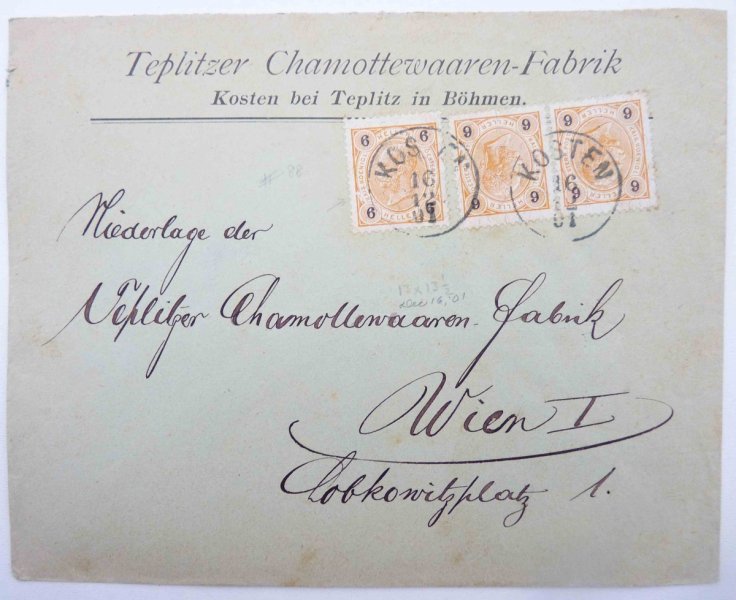 Teplitzer Chamottewaaren-Fabrik
Kosten bei Teplitz in Böhmen.
6 6 6 6 6 6 6 6
6 6 6
HELLER HELLER
KOSTEN
16
12
01
KOSTEN
16
01
# 88
Niederlage der
13 x 13 ½
Dec 16, '01
Teplitzer Chamottewaaren-Fabrik
Wien I
Lobkowitzplatz 1.